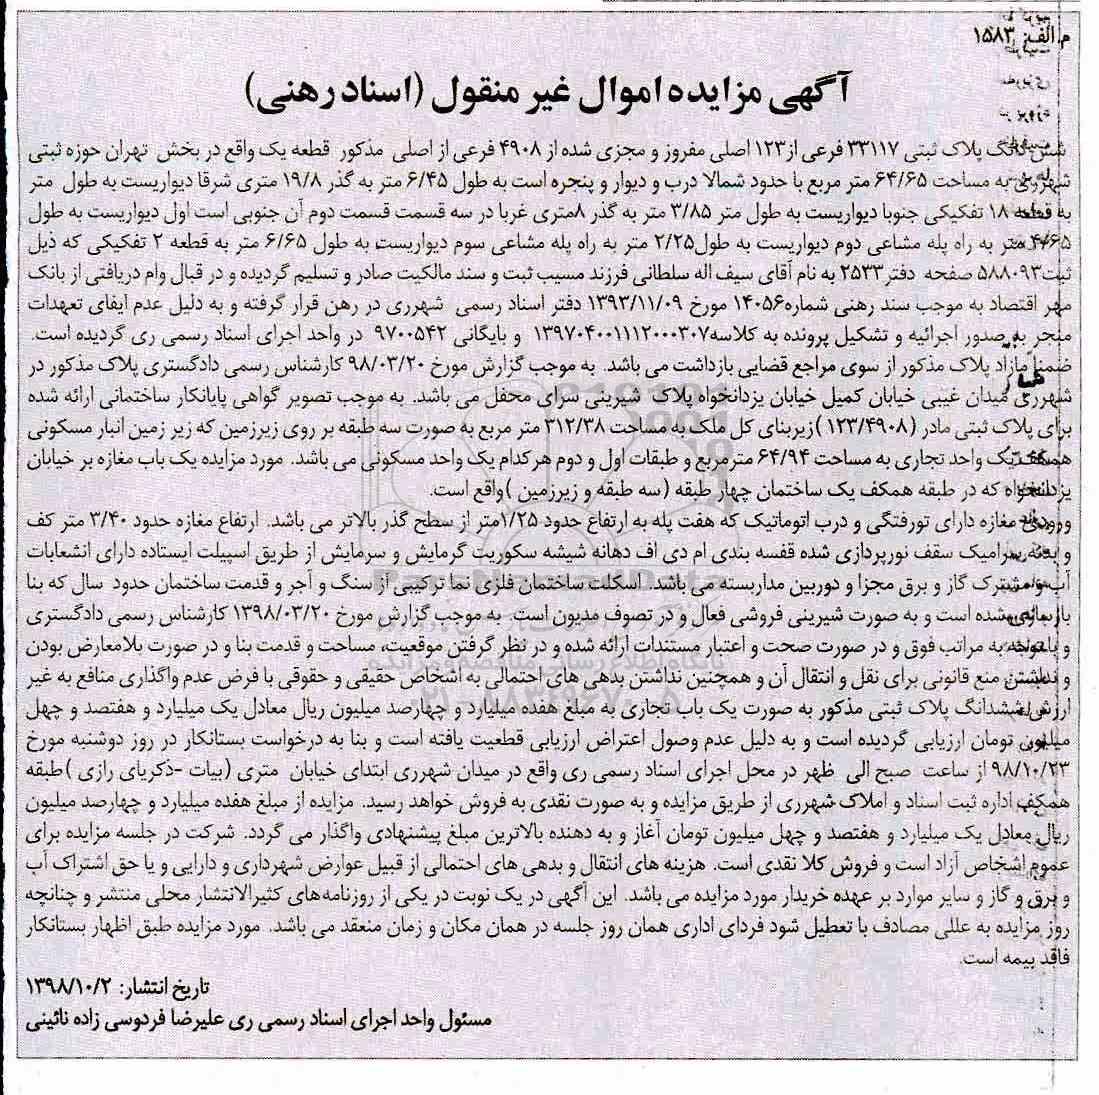 م الف: ۱۵۸۳
آگهی مزایده اموال غیر منقول (اسناد رهنی)
شش دانگ پلاک ثبتی ۳۳۱۱۷ فرعی از۱۲۳ اصلی مفروز و مجزی شده از ۴۹۰۸ فرعی از اصلی مذکور قطعه یک واقع در بخش تهران حوزه ثبتی
شهرری به مساحت ۶۴/۶۵ متر مربع با حدود شمالا درب و دیوار و پنجره است به طول ۶/۴۵ متر به گذر ۱۹/۸ متری شرقا دیواریست به طول متر
به قطعه ۱۸ تفکیکی جنوبا دیواریست به طول متر ۳/۸۵ متر به گذر ۸متری غربا در سه قسمت قسمت دوم آن جنوبی است اول دیواریست به طول
۴/۶۵ متر به راه پله مشاعی دوم دیواریست به طول۲/۲۵ متر به راه پله مشاعی سوم دیواریست به طول ۶/۶۵ متر به قطعه ۲ تفکیکی که ذیل
ثبت۵۸۸۰۹۳ صفحه دفتر۲۵۳۳ به نام آقای سیف اله سلطانی فرزند مسیب ثبت و سند مالکیت صادر و تسلیم گردیده و در قبال وام دریافتی از بانک
مهر اقتصاد به موجب سند رهنی شماره۱۴۰۵۶ مورخ ۱۳۹۳/۱۱/۰۹ دفتر اسناد رسمی شهرری در رهن قرار گرفته و به دلیل عدم ایفای تعهدات
منجر به صدور اجرائیه و تشکیل پرونده به کلاسه۱۳۹۷۰۴۰۰۱۱۱۲۰۰۰۳۰۷ و بایگانی ۹۷۰۰۵۴۲ در واحد اجرای اسناد رسمی ری گردیده است.
ضمنا مازاد پلاک مذکور از سوی مراجع قضایی بازداشت می باشد. به موجب گزارش مورخ ۹۸/۰۳/۲۰ کارشناس رسمی دادگستری پلاک مذکور در
شهرری میدان غیبی خیابان کمیل خیابان یزدانخواه پلاک شیرینی سرای محفل می باشد. به موجب تصویر گواهی پایانکار ساختمانی ارائه شده
برای پلاک ثبتی مادر (۱۲۳/۴۹۰۸) زیربنای کل ملک به مساحت ۳۱۲/۳۸ متر مربع به صورت سه طبقه بر روی زیرزمین که زیر زمین انبار مسکونی
همکف یک واحد تجاری به مساحت ۶۴/۹۴ مترمربع و طبقات اول و دوم هرکدام یک واحد مسکونی می باشد. مورد مزایده یک باب مغازه بر خیابان
یزدانخواه که در طبقه همکف یک ساختمان چهار طبقه (سه طبقه و زیرزمین )واقع است.
ورودی مغازه دارای تورفتگی و درب اتوماتیک که هفت پله به ارتفاع حدود ۱/۲۵متر از سطح گذر بالاتر می باشد. ارتفاع مغازه حدود ۳/۴۰ متر کف
و بدنه سرامیک سقف نورپردازی شده قفسه بندی ام دی اف دهانه شیشه سکوریت گرمایش و سرمایش از طریق اسپیلت ایستاده دارای انشعابات
آب و مشترک گاز و برق مجزا و دوربین مداربسته می باشد. اسکلت ساختمان فلزی نما ترکیبی از سنگ و آجر و قدمت ساختمان حدود سال که بنا
بازسازی شده است و به صورت شیرینی فروشی فعال و در تصوف مدیون است. به موجب گزارش مورخ ۱۳۹۸/۰۳/۲۰ کارشناس رسمی دادگستری
و با توجه به مراتب فوق و در صورت صحت و اعتبار مستندات ارائه شده و در نظر گرفتن موقعیت، مساحت و قدمت بنا و در صورت بلامعارض بودن
و نداشتن منع قانونی برای نقل و انتقال آن و همچنین نداشتن بدهی های احتمالی به اشخاص حقیقی و حقوقی با فرض عدم واگذاری منافع به غیر
ارزش ششدانگ پلاک ثبتی مذکور به صورت یک باب تجاری به مبلغ هفده میلیارد و چهارصد میلیون ریال معادل یک میلیارد و هفتصد و چهل
میلیون تومان ارزیابی گردیده است و به دلیل عدم وصول اعتراض ارزیابی قطعیت یافته است و بنا به درخواست بستانکار در روز دوشنبه مورخ
۹۸/۱۰/۲۳ از ساعت صبح الی ظهر در محل اجرای اسناد رسمی ری واقع در میدان شهرری ابتدای خیابان متری (بیات -ذکریای رازی )طبقه
همکف اداره ثبت اسناد و املاک شهرری از طریق مزایده و به صورت نقدی به فروش خواهد رسید. مزایده از مبلغ هفده میلیارد و چهارصد میلیون
ریال معادل یک میلیارد و هفتصد و چهل میلیون تومان آغاز و به دهنده بالاترین مبلغ پیشنهادی واگذار می گردد. شرکت در جلسه مزایده برای
عموم اشخاص آزاد است و فروش کلا نقدی است. هزینه های انتقال و بدهی های احتمالی از قبیل عوارض شهرداری و دارایی و یا حق اشتراک آب
و برق و گاز و سایر موارد بر عهده خریدار مورد مزایده می باشد. این آگهی در یک نوبت در یکی از روزنامه‌های کثیرالانتشار محلی منتشر و چنانچه
روز مزایده به عللی مصادف با تعطیل شود فردای اداری همان روز جلسه در همان مکان و زمان منعقد می باشد. مورد مزایده طبق اظهار بستانکار
فاقد بیمه است.
تاریخ انتشار: ۱۳۹۸/۱۰/۲
مسئول واحد اجرای اسناد رسمی ری علیرضا فردوسی زاده نائینی